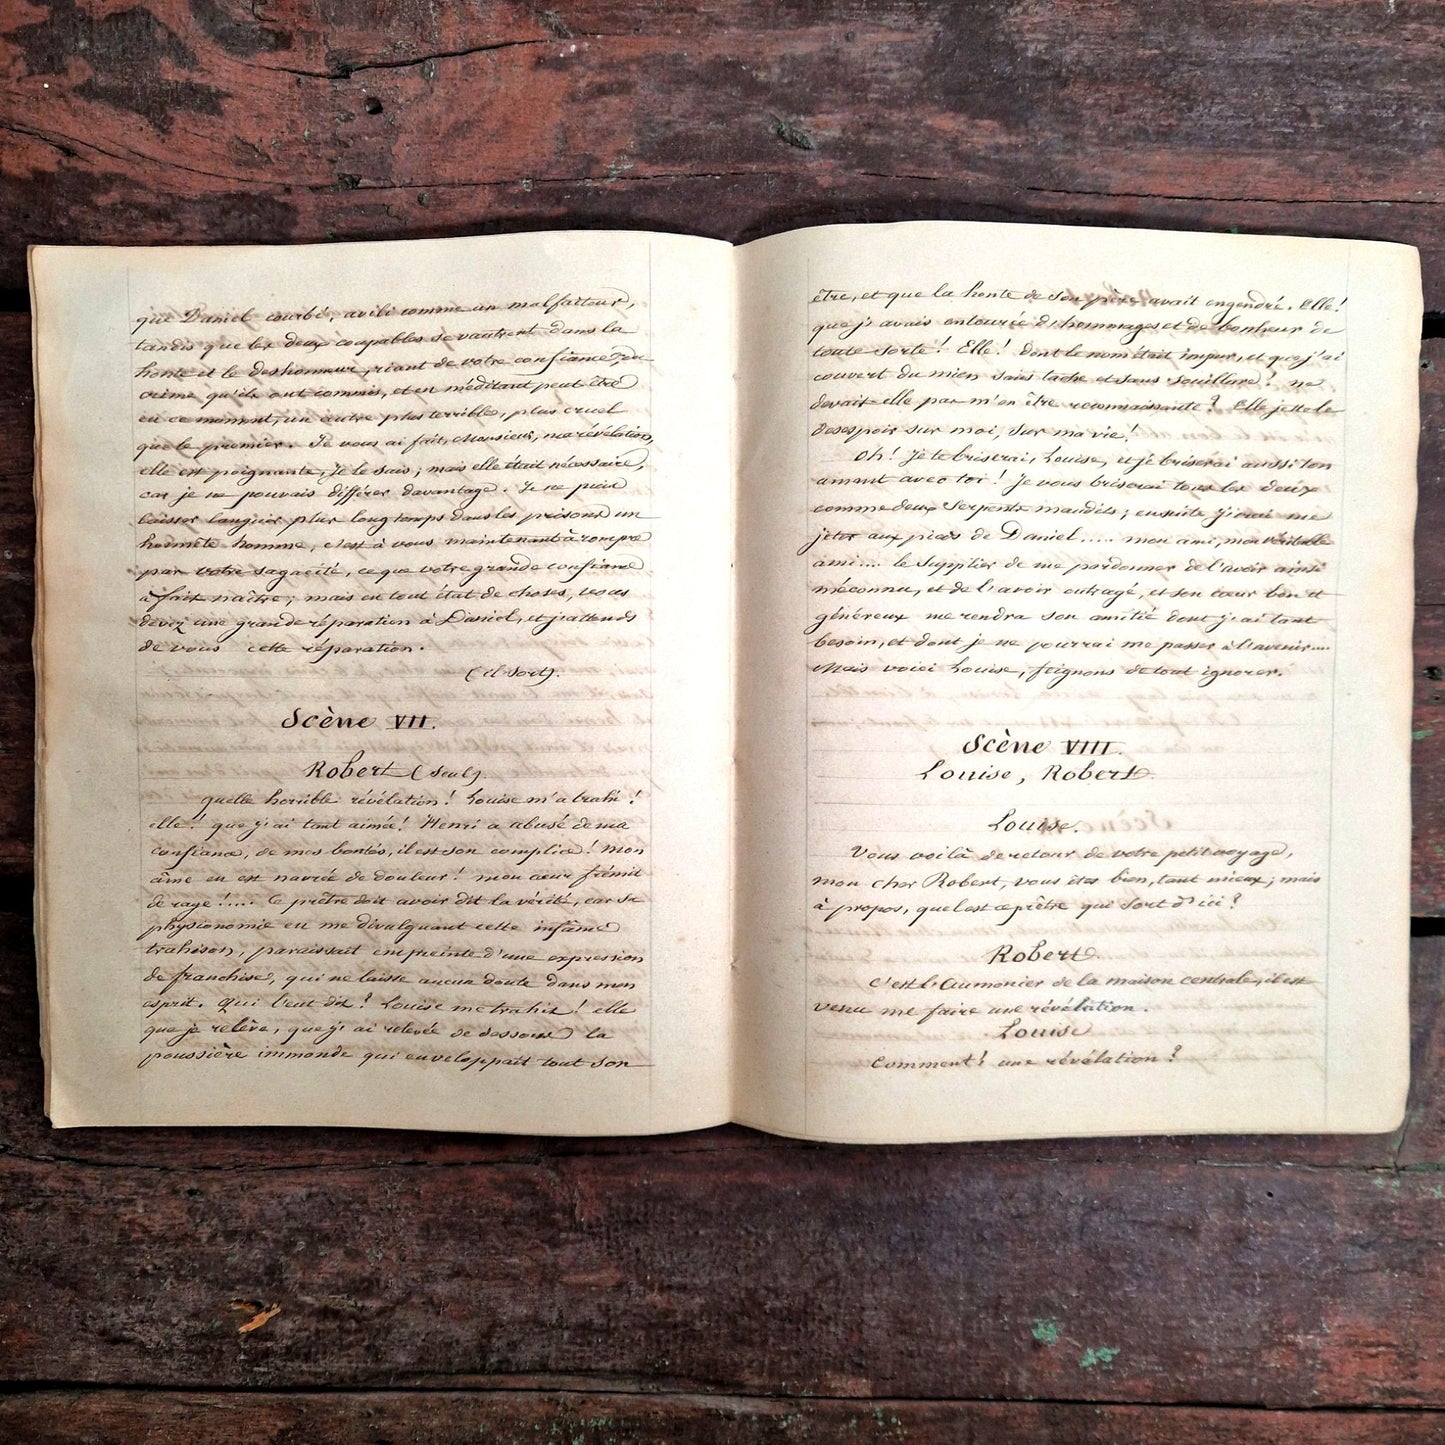 que Daniel courbé, avili comme un malfaiteur,
tandis que les deux coupables se vautrent dans la
honte et le deshonneur, riant de votre confiance, du
crime qu'ils ont commis, et en méditant peut être
en ce moment, un autre plus terrible, plus cruel
que le premier. Je vous ai fait, Monsieur, ma révélation,
elle est poignante, je le sais; mais elle était nécessaire,
car je ne pouvais différer davantage. Je ne puis
laisser languir plus longtemps dans les prisons un
honnête homme, c'est à vous maintenant à rompre
par votre sagacité, ce que votre grande confiance
à fait naître; mais en tout état de choses, vous
devez une grande réparation à Daniel, et j'attends
de vous cette réparation.
(il sort).
Scène VII.
Robert (seul).
quelle horrible révélation! Louise m'a trahi!
elle! que j'ai tant aimée! Henri a abusé de ma
confiance, de mes bontés, il est son complice! mon
âme en est navrée de douleur! mon cœur frémit
de rage!.... Ce prêtre doit avoir dit la vérité, car sa
physionomie en me divulguant cette infâme
trahison, paraissait empreinte d'une expression
de franchise, qui ne laisse aucun doute dans mon
esprit. Qui l'eut dit? Louise me trahir! elle
que je relève, que j'ai relevée de dessous la
poussière immonde qui enveloppait tout son
être, et que la honte de son père avait engendré. Elle!
que j'avais entourée d'hommages et de bonheur de
toute sorte! Elle! dont le nom était impur, et que j'ai
couvert du mien sans tache et sans souillure! ne
devait elle pas m'en être reconnaissante? Elle jette le
désespoir sur moi, sur ma vie!
Oh! je te briserai, Louise, et je briserai aussi ton
amant avec toi! je vous briserai tous les deux
comme deux serpents maudits; ensuite j'irai me
jeter aux pieds de Daniel..... mon ami, mon véritable
ami.... le supplier de me pardonner de l'avoir ainsi
méconnu, et de l'avoir outragé, et son cœur bon et
généreux me rendra son amitié dont j'ai tant
besoin, et dont je ne pourrai me passer à l'avenir....
Mais voici Louise, feignons de tout ignorer.
Scène VIII.
Louise, Robert.
Louise.
Vous voilà de retour de votre petit voyage,
mon cher Robert, vous êtes bien, tant mieux; mais
à propos, quel est ce prêtre qui sort d'ici?
Robert
C'est l'Aumonier de la maison centrale, il est
venu me faire une révélation.
Louise
Comment! une révélation?